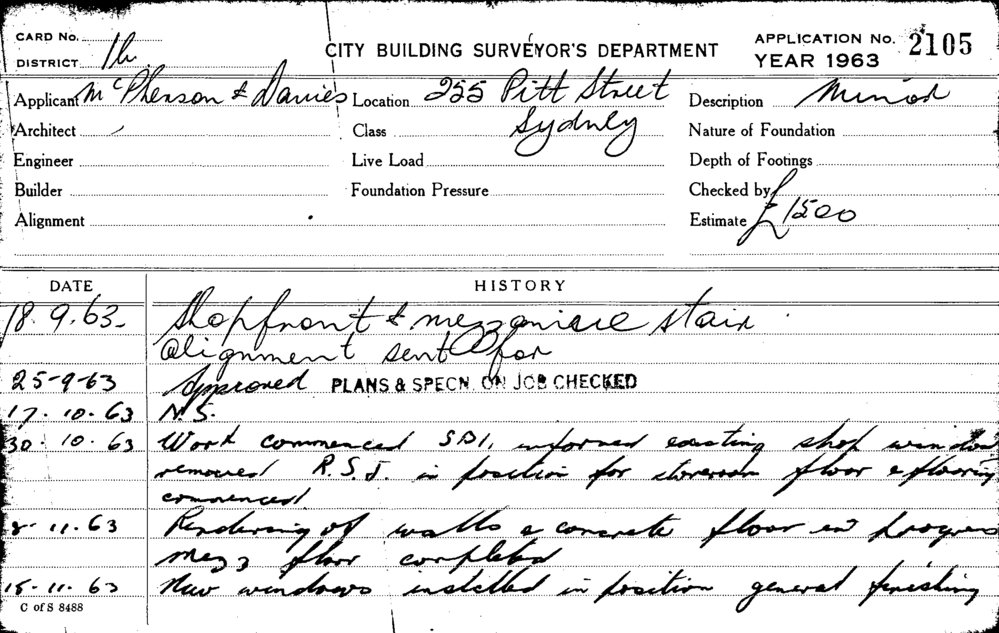 CARD No.
DISTRICT 1b.
CITY BUILDING SURVEYOR'S DEPARTMENT
APPLICATION No. 2105
YEAR 1963
Applicant McPherson & Davies Location 255 Pitt Street Description Minor
Architect Class Sydney Nature of Foundation
Engineer Live Load Depth of Footings
Builder Foundation Pressure Checked by
Alignment Estimate £1500
DATE HISTORY
18.9.63 Shopfront & mezzanine stair
alignment sent for
25-9-63 Approved PLANS & SPECN. ON JOB CHECKED
17.10.63 N.S.
30.10.63 Work commenced informed existing shop window
removed R.S.J. in position for floor & flooring
commenced
8.11.63 Rendering of walls & concrete floor in progress
mezz floor completed
15.11.63 New windows installed in position general finishing
C of S 8488